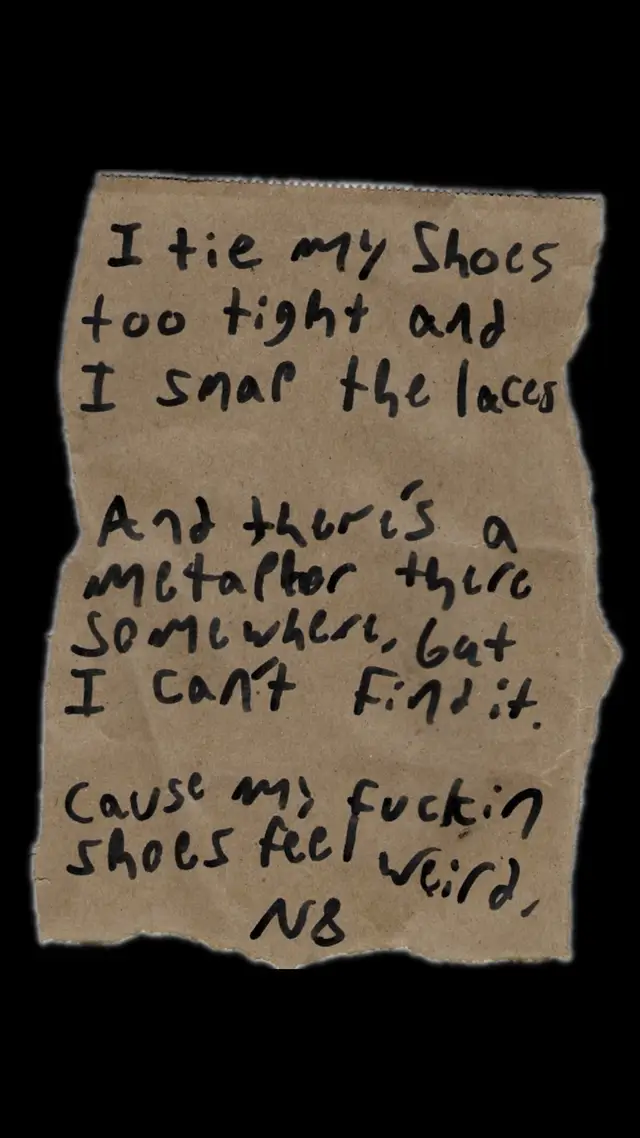 I tie my Shoes
too tight and
I snap the laces
And there's a
metaphor there
somewhere, but
I can't find it.
Cause my fuckin
shoes feel weird.
NB